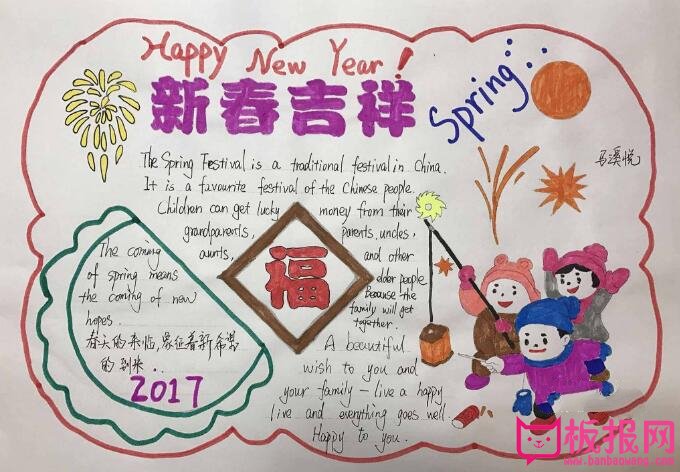 Happy New Year!
新春吉祥
Spring
马溪悦
The Spring Festival is a traditional festival in China.
It is a favourite festival of the Chinese people.
Children can get lucky money from their
grandparents, parents, uncles,
aunts, and other
elder people
Because the
family will get
together.
福
The coming
of spring means
the coming of new
hopes.
春天的来临,象征着新希望
的到来.
2017
A beautiful
wish to you and
your family - live a happy
live and everything goes well.
Happy to you.
板报网
www.banbaowang.com